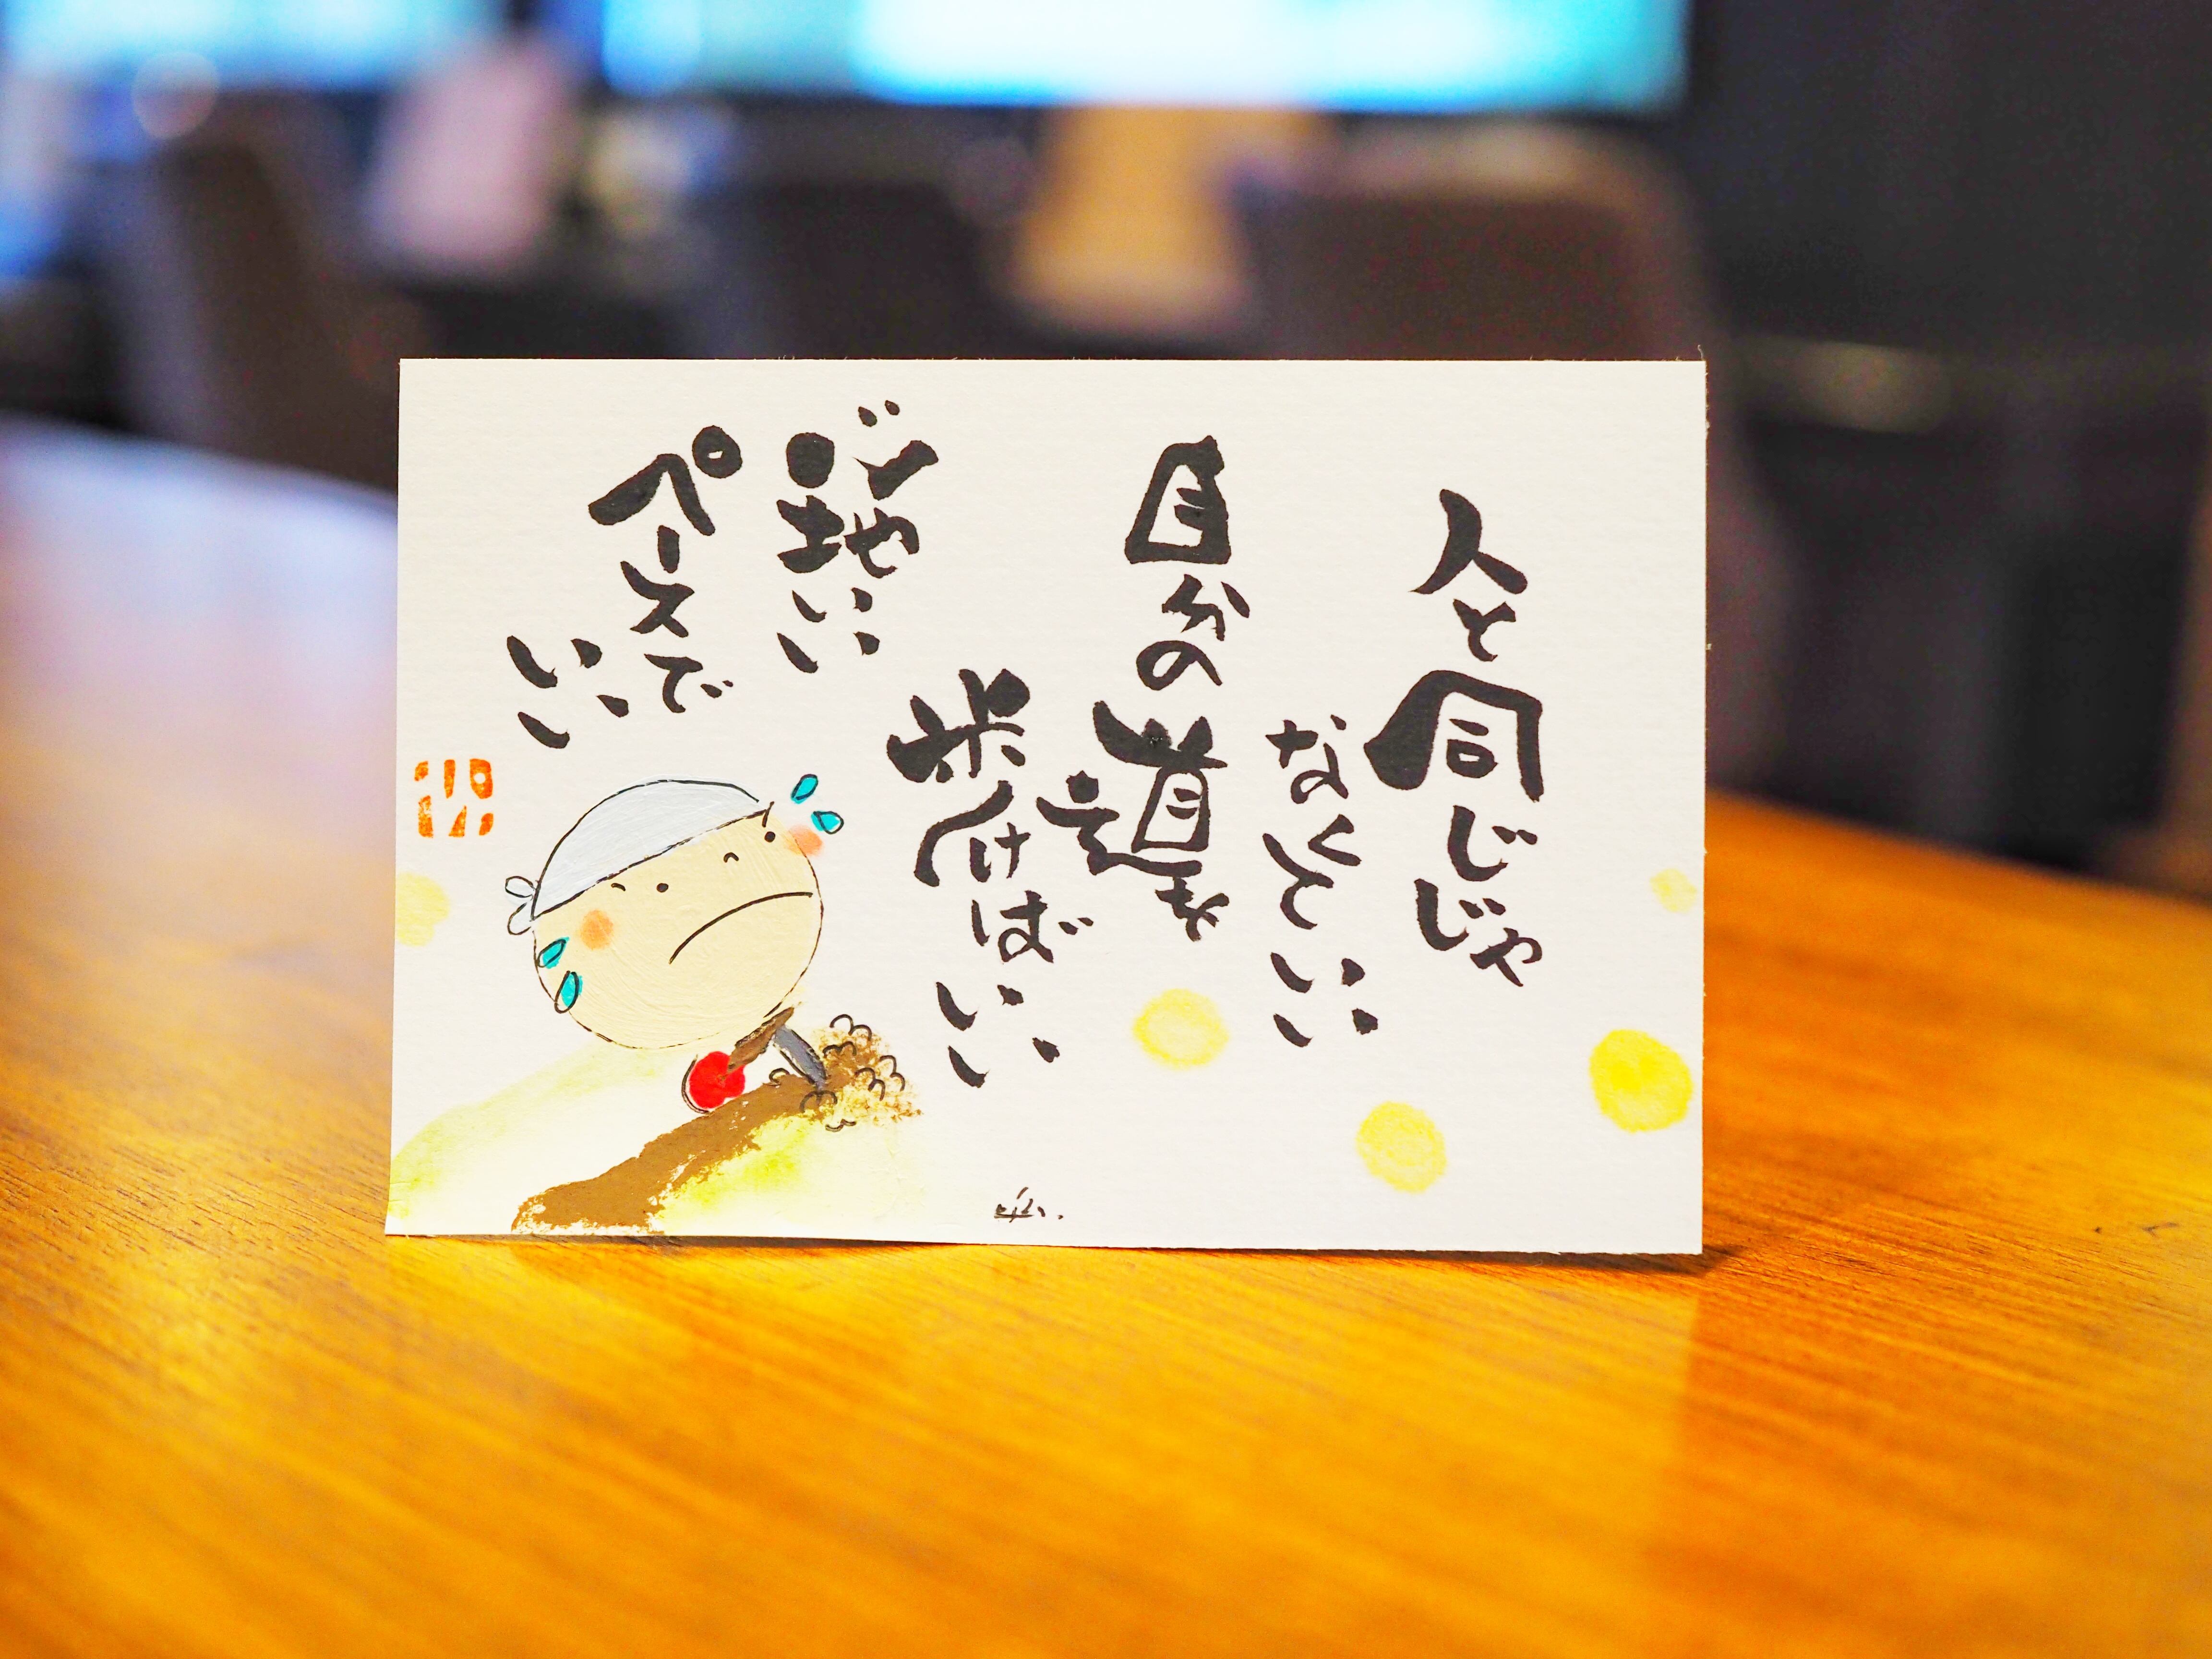 人と同じじゃ
なくていい
自分の道を
歩けばいい
心地いい
ペースで
いい